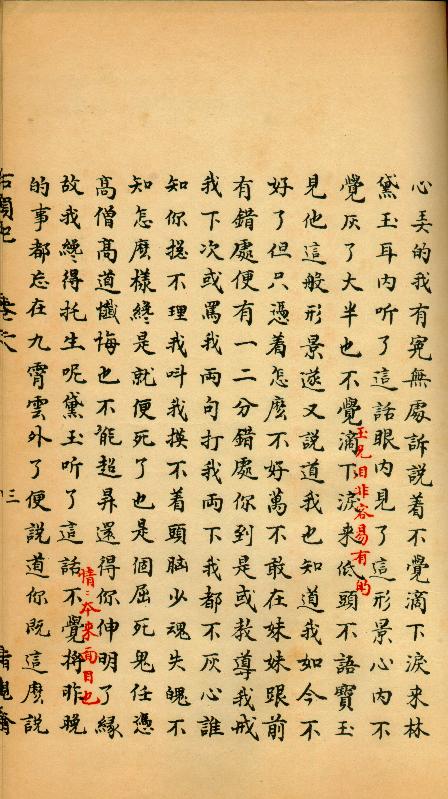 心美的我有冤無處訴説着不覺滴下淚来林
黛玉耳内听了這話眼内見了這形景心内不
覺灰了大半也不覺滴下淚来低頭不語寶玉
玉兄目非容易有的
見他這般形景遂又説道我也知道我如今不
好了但只憑着怎麼不好萬不敢在妹妹跟前
有錯處便有一二分錯處你到是或教導我戒
我下次或罵我两句打我两下我都不灰心誰
知你捴不理我呌我摸不着頭腦少魂失魄不
知怎麽樣纔是就便死了也是個屈死鬼任憑
高僧高道懺悔也不能超昇還得你伸明了緣
故我纔得托生呢黛玉听了這話不覺将昨晚
情:本来面目也
的事都忘在九霄雲外了便説道你既這麽説
石頭記 卷之八 三 脂硯齋